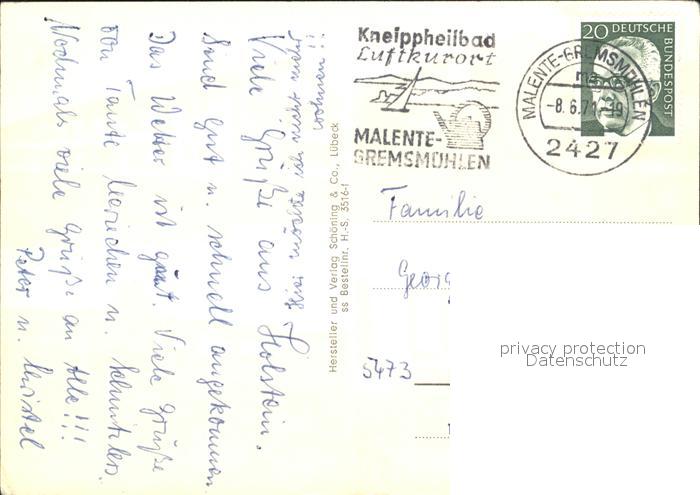 Viele Grüße aus Holstein.
Sind gut u. schnell angekommen
Das Wetter ist gut. Viele Grüße
von Tante u.
Nochmals viele Grüße an Alle!!!
Peter u. Christel
Hersteller und Verlag Schöning & Co., Lübeck
ss Bestellnr. H.-S. 3516-f
Kneippheilbad
Luftkurort
MALENTE-
GREMSMÜHLEN
MALENTE-GREMSMÜHLEN
-8.6.71-19
2427
20 DEUTSCHE
BUNDESPOST
Familie
Georg
5473
privacy protection
Datenschutz